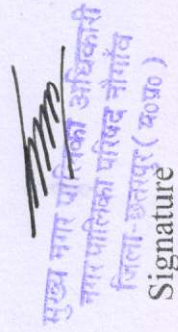 मुख्य नगर पालिका अधिकारी
नगर पालिका परिषद नौगाँव
जिला-छतरपुर (म०प्र०)
Signature